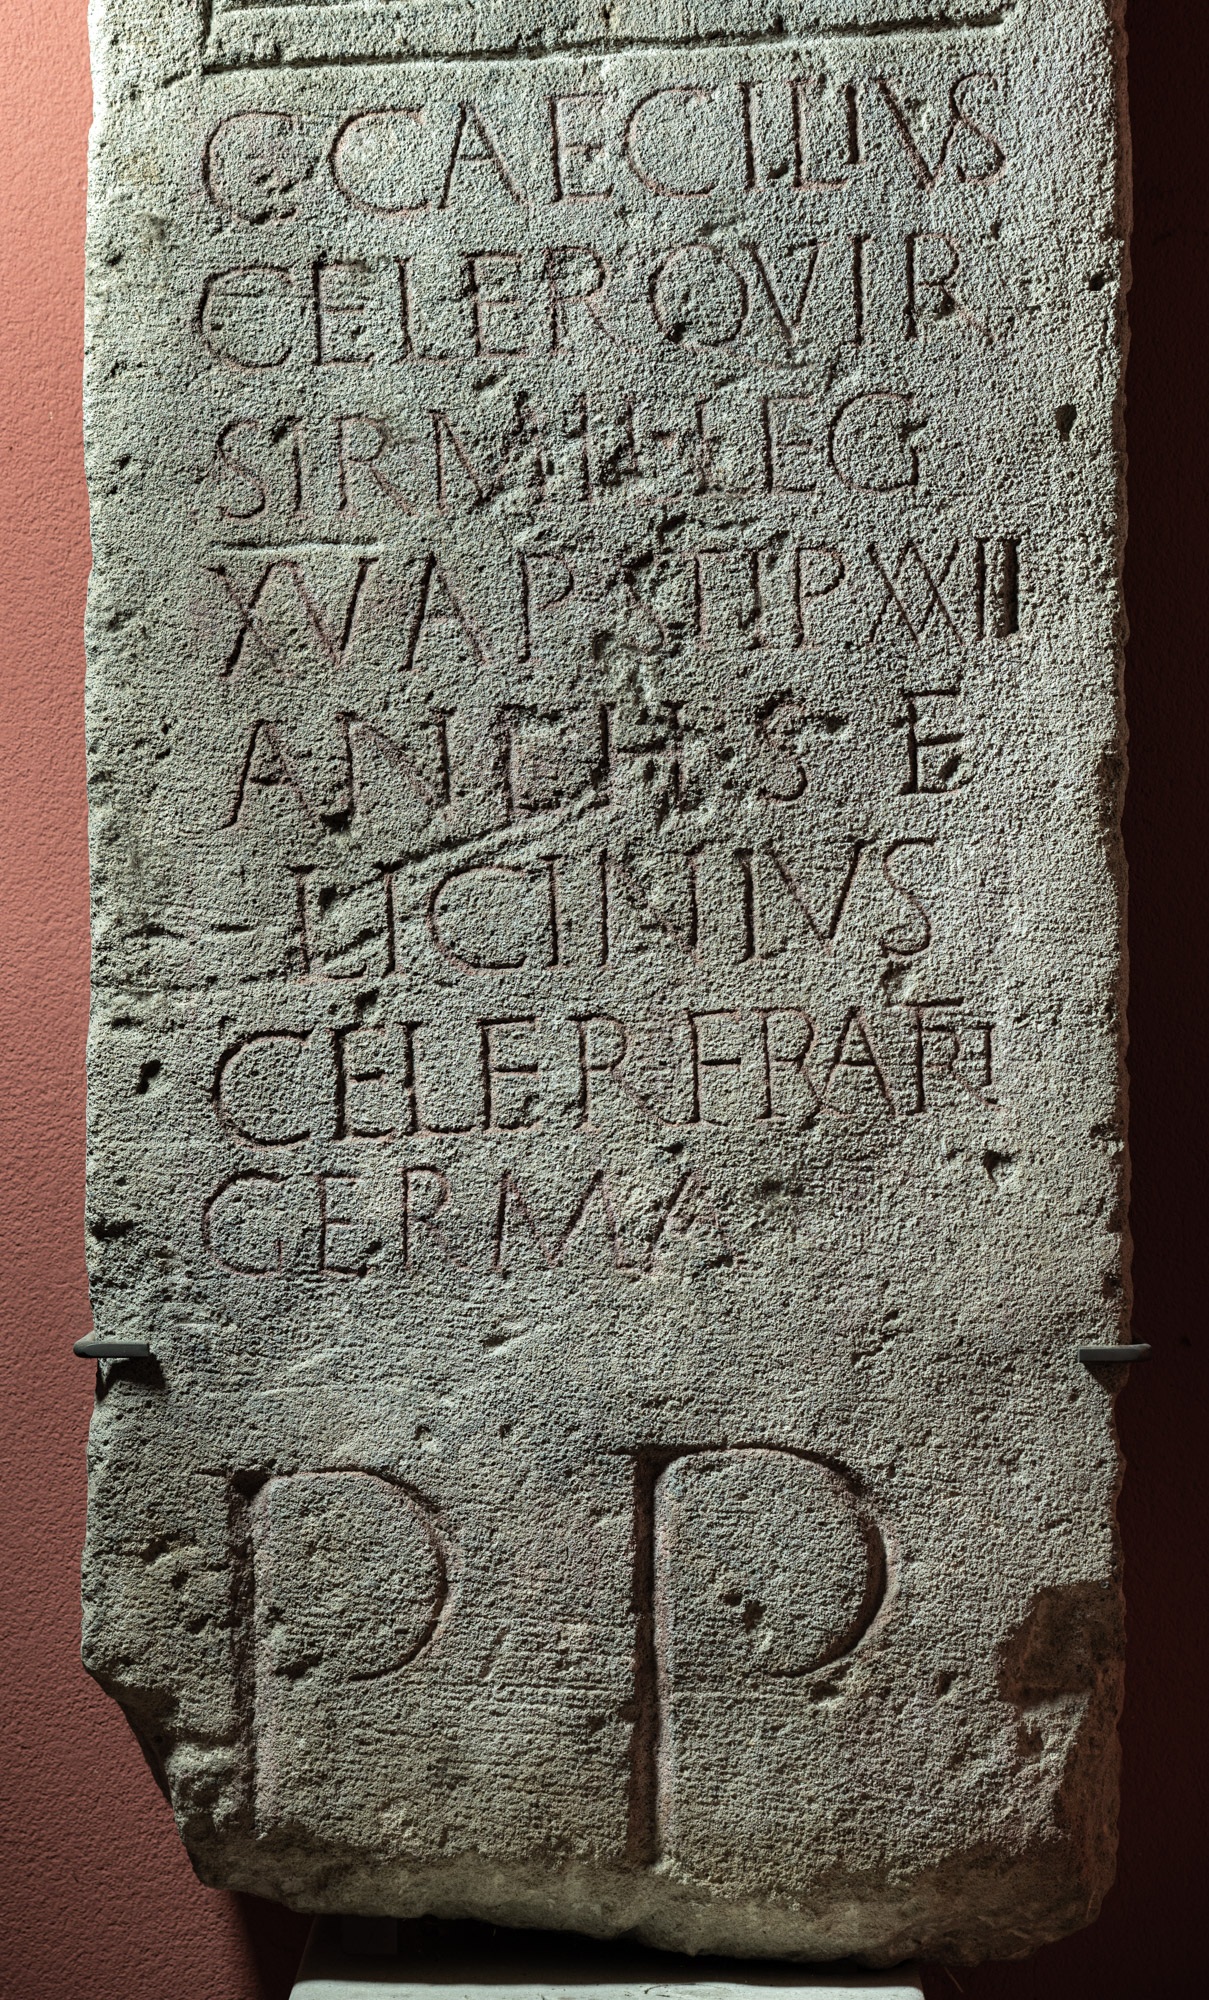 C CAECILIVS
CELER QVIR
SIRMII LEG
XV AP STIP XVII
AN H S E
LICINIVS
CELER FRATRI
GERMA
P P